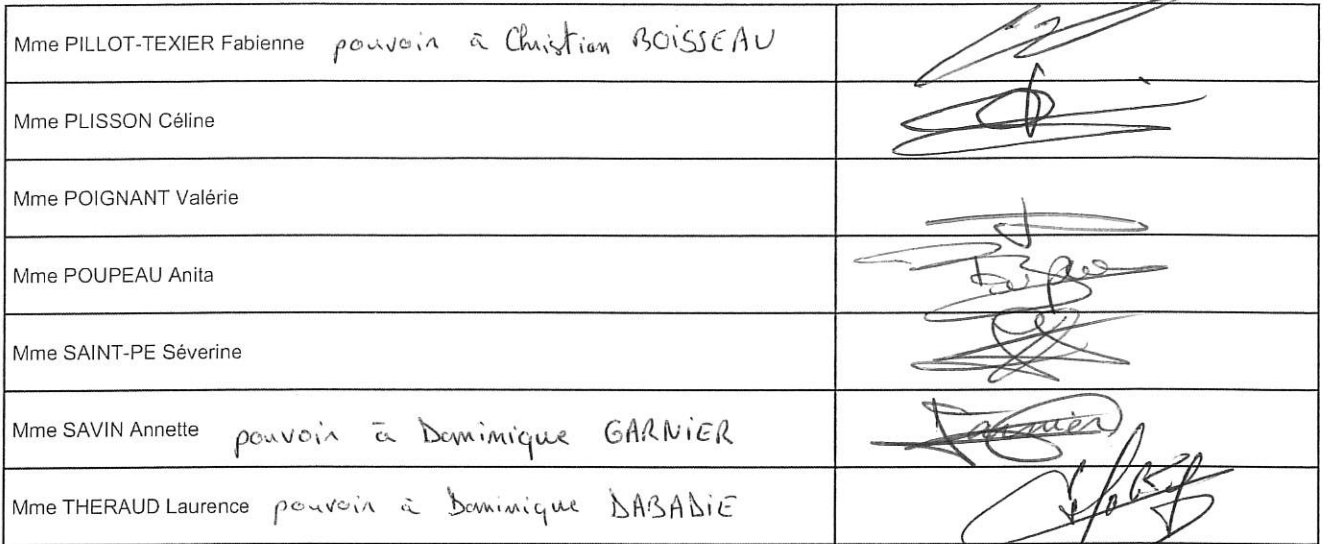 Mme PILLOT-TEXIER Fabienne pouvoir à Christian BOISSEAU
Mme PLISSON Céline
Mme POIGNANT Valérie
Mme POUPEAU Anita
Mme SAINT-PE Séverine
Mme SAVIN Annette pouvoir à Dominique GARNIER
Garnier
Mme THERAUD Laurence pouvoir à Dominique DABADIE